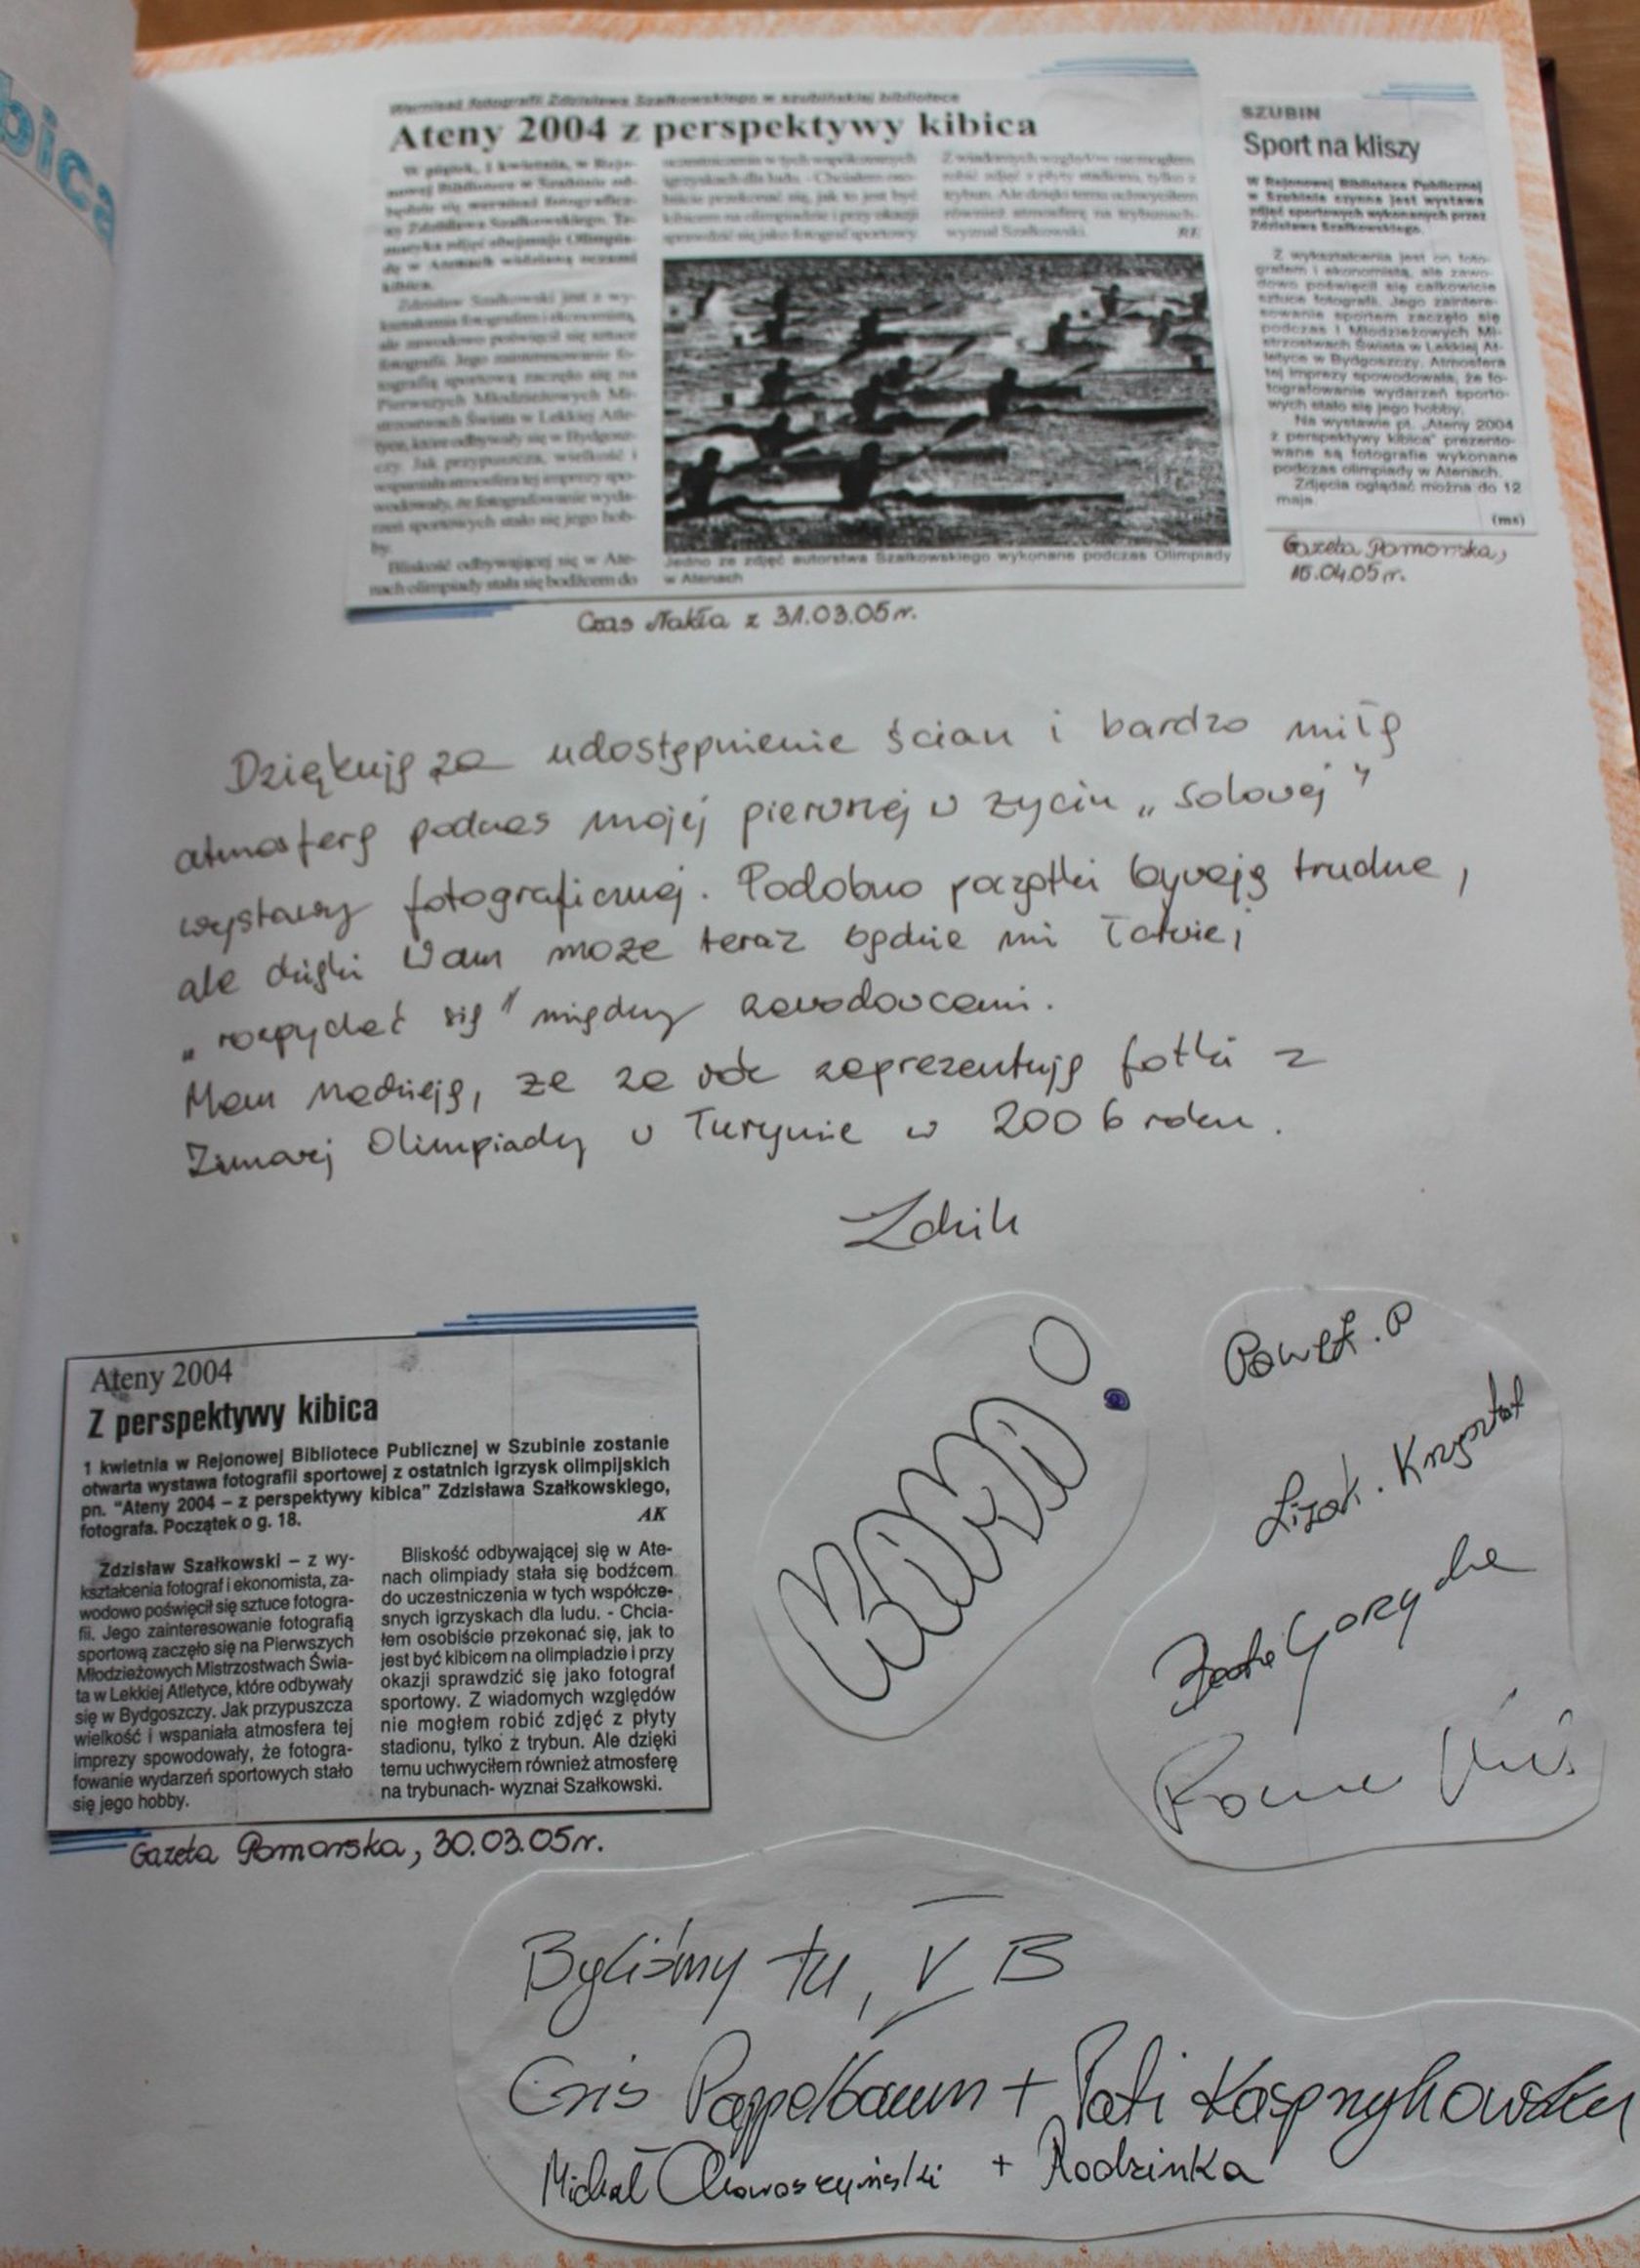 bica
Wernisaż fotografii Zdzisława Szałkowskiego w szubińskiej bibliotece
Ateny 2004 z perspektywy kibica
W piątek, 1 kwietnia, w Rejo-
nowej Bibliotece w Szubinie od-
będzie się wernisaż fotograficz-
ny Zdzisława Szałkowskiego. Te-
matyka zdjęć obejmuje Olimpia-
dę w Atenach widzianą oczami
kibica.
Zdzisław Szałkowski jest z wy-
kształcenia fotografem i ekonomistą,
ale zawodowo poświęcił się sztuce
fotografii. Jego zainteresowanie fo-
tografią sportową zaczęło się na
Pierwszych Młodzieżowych Mi-
strzostwach Świata w Lekkiej Atle-
tyce, które odbywały się w Bydgosz-
czy. Jak przypuszcza, wielkość i
wspaniała atmosfera tej imprezy spo-
wodowały, że fotografowanie wyda-
rzeń sportowych stało się jego hob-
by.
Bliskość odbywającej się w Ate-
nach olimpiady stała się bodźcem do
uczestniczenia w tych współczesnych
igrzyskach dla ludu. - Chciałem oso-
biście przekonać się, jak to jest być
kibicem na olimpiadzie i przy okazji
sprawdzić się jako fotograf sportowy.
Z wiadomych względów nie mogłem
robić zdjęć z płyty stadionu, tylko z
trybun. Ale dzięki temu uchwyciłem
również atmosferę na trybunach-
wyznał Szałkowski.
RE
Jedno ze zdjęć autorstwa Szałkowskiego wykonane podczas Olimpiady
w Atenach
Czas Nakła z 31.03.05r.
SZUBIN
Sport na kliszy
W Rejonowej Bibliotece Publicznej
w Szubinie czynna jest wystawa
zdjęć sportowych wykonanych przez
Zdzisława Szałkowskiego.
Z wykształcenia jest on foto-
grafem i ekonomistą, ale zawo-
dowo poświęcił się całkowicie
sztuce fotografii. Jego zaintere-
sowanie sportem zaczęło się
podczas I Młodzieżowych Mi-
strzostwach Świata w Lekkiej At-
letyce w Bydgoszczy. Atmosfera
tej imprezy spowodowała, że fo-
tografowanie wydarzeń sporto-
wych stało się jego hobby.
Na wystawie pt. „Ateny 2004
z perspektywy kibica" prezento-
wane są fotografie wykonane
podczas olimpiady w Atenach.
Zdjęcia oglądać można do 12
maja.
(ms)
Gazeta Pomorska,
15.04.05r.
Dziękuję za udostępnienie ścian i bardzo miłą
atmosferę podczas mojej pierwszej w życiu „solowej"
wystawy fotograficznej. Podobno początki bywają trudne,
ale dzięki Wam może teraz będzie mi łatwiej
„rozpychać się" między zawodowcami.
Mam nadzieję, że za rok zaprezentuję fotki z
Zimowej Olimpiady w Turynie w 2006 roku.
Zdzih
Ateny 2004
Z perspektywy kibica
1 kwietnia w Rejonowej Bibliotece Publicznej w Szubinie zostanie
otwarta wystawa fotografii sportowej z ostatnich igrzysk olimpijskich
pn. "Ateny 2004 – z perspektywy kibica" Zdzisława Szałkowskiego,
fotografa. Początek o g. 18.
AK
Zdzisław Szałkowski – z wy-
kształcenia fotograf i ekonomista, za-
wodowo poświęcił się sztuce fotogra-
fii. Jego zainteresowanie fotografią
sportową zaczęło się na Pierwszych
Młodzieżowych Mistrzostwach Świa-
ta w Lekkiej Atletyce, które odbywały
się w Bydgoszczy. Jak przypuszcza
wielkość i wspaniała atmosfera tej
imprezy spowodowały, że fotogra-
fowanie wydarzeń sportowych stało
się jego hobby.
Bliskość odbywającej się w Ate-
nach olimpiady stała się bodźcem
do uczestniczenia w tych współcze-
snych igrzyskach dla ludu. - Chcia-
łem osobiście przekonać się, jak to
jest być kibicem na olimpiadzie i przy
okazji sprawdzić się jako fotograf
sportowy. Z wiadomych względów
nie mogłem robić zdjęć z płyty
stadionu, tylko z trybun. Ale dzięki
temu uchwyciłem również atmosferę
na trybunach- wyznał Szałkowski.
Gazeta Pomorska, 30.03.05r.
Paweł. P
Lizak. Krzysztof
Byliśmy tu, V B
Cris Pappelbaum + Pati Kasprzykowska
Michał + Rodzinka